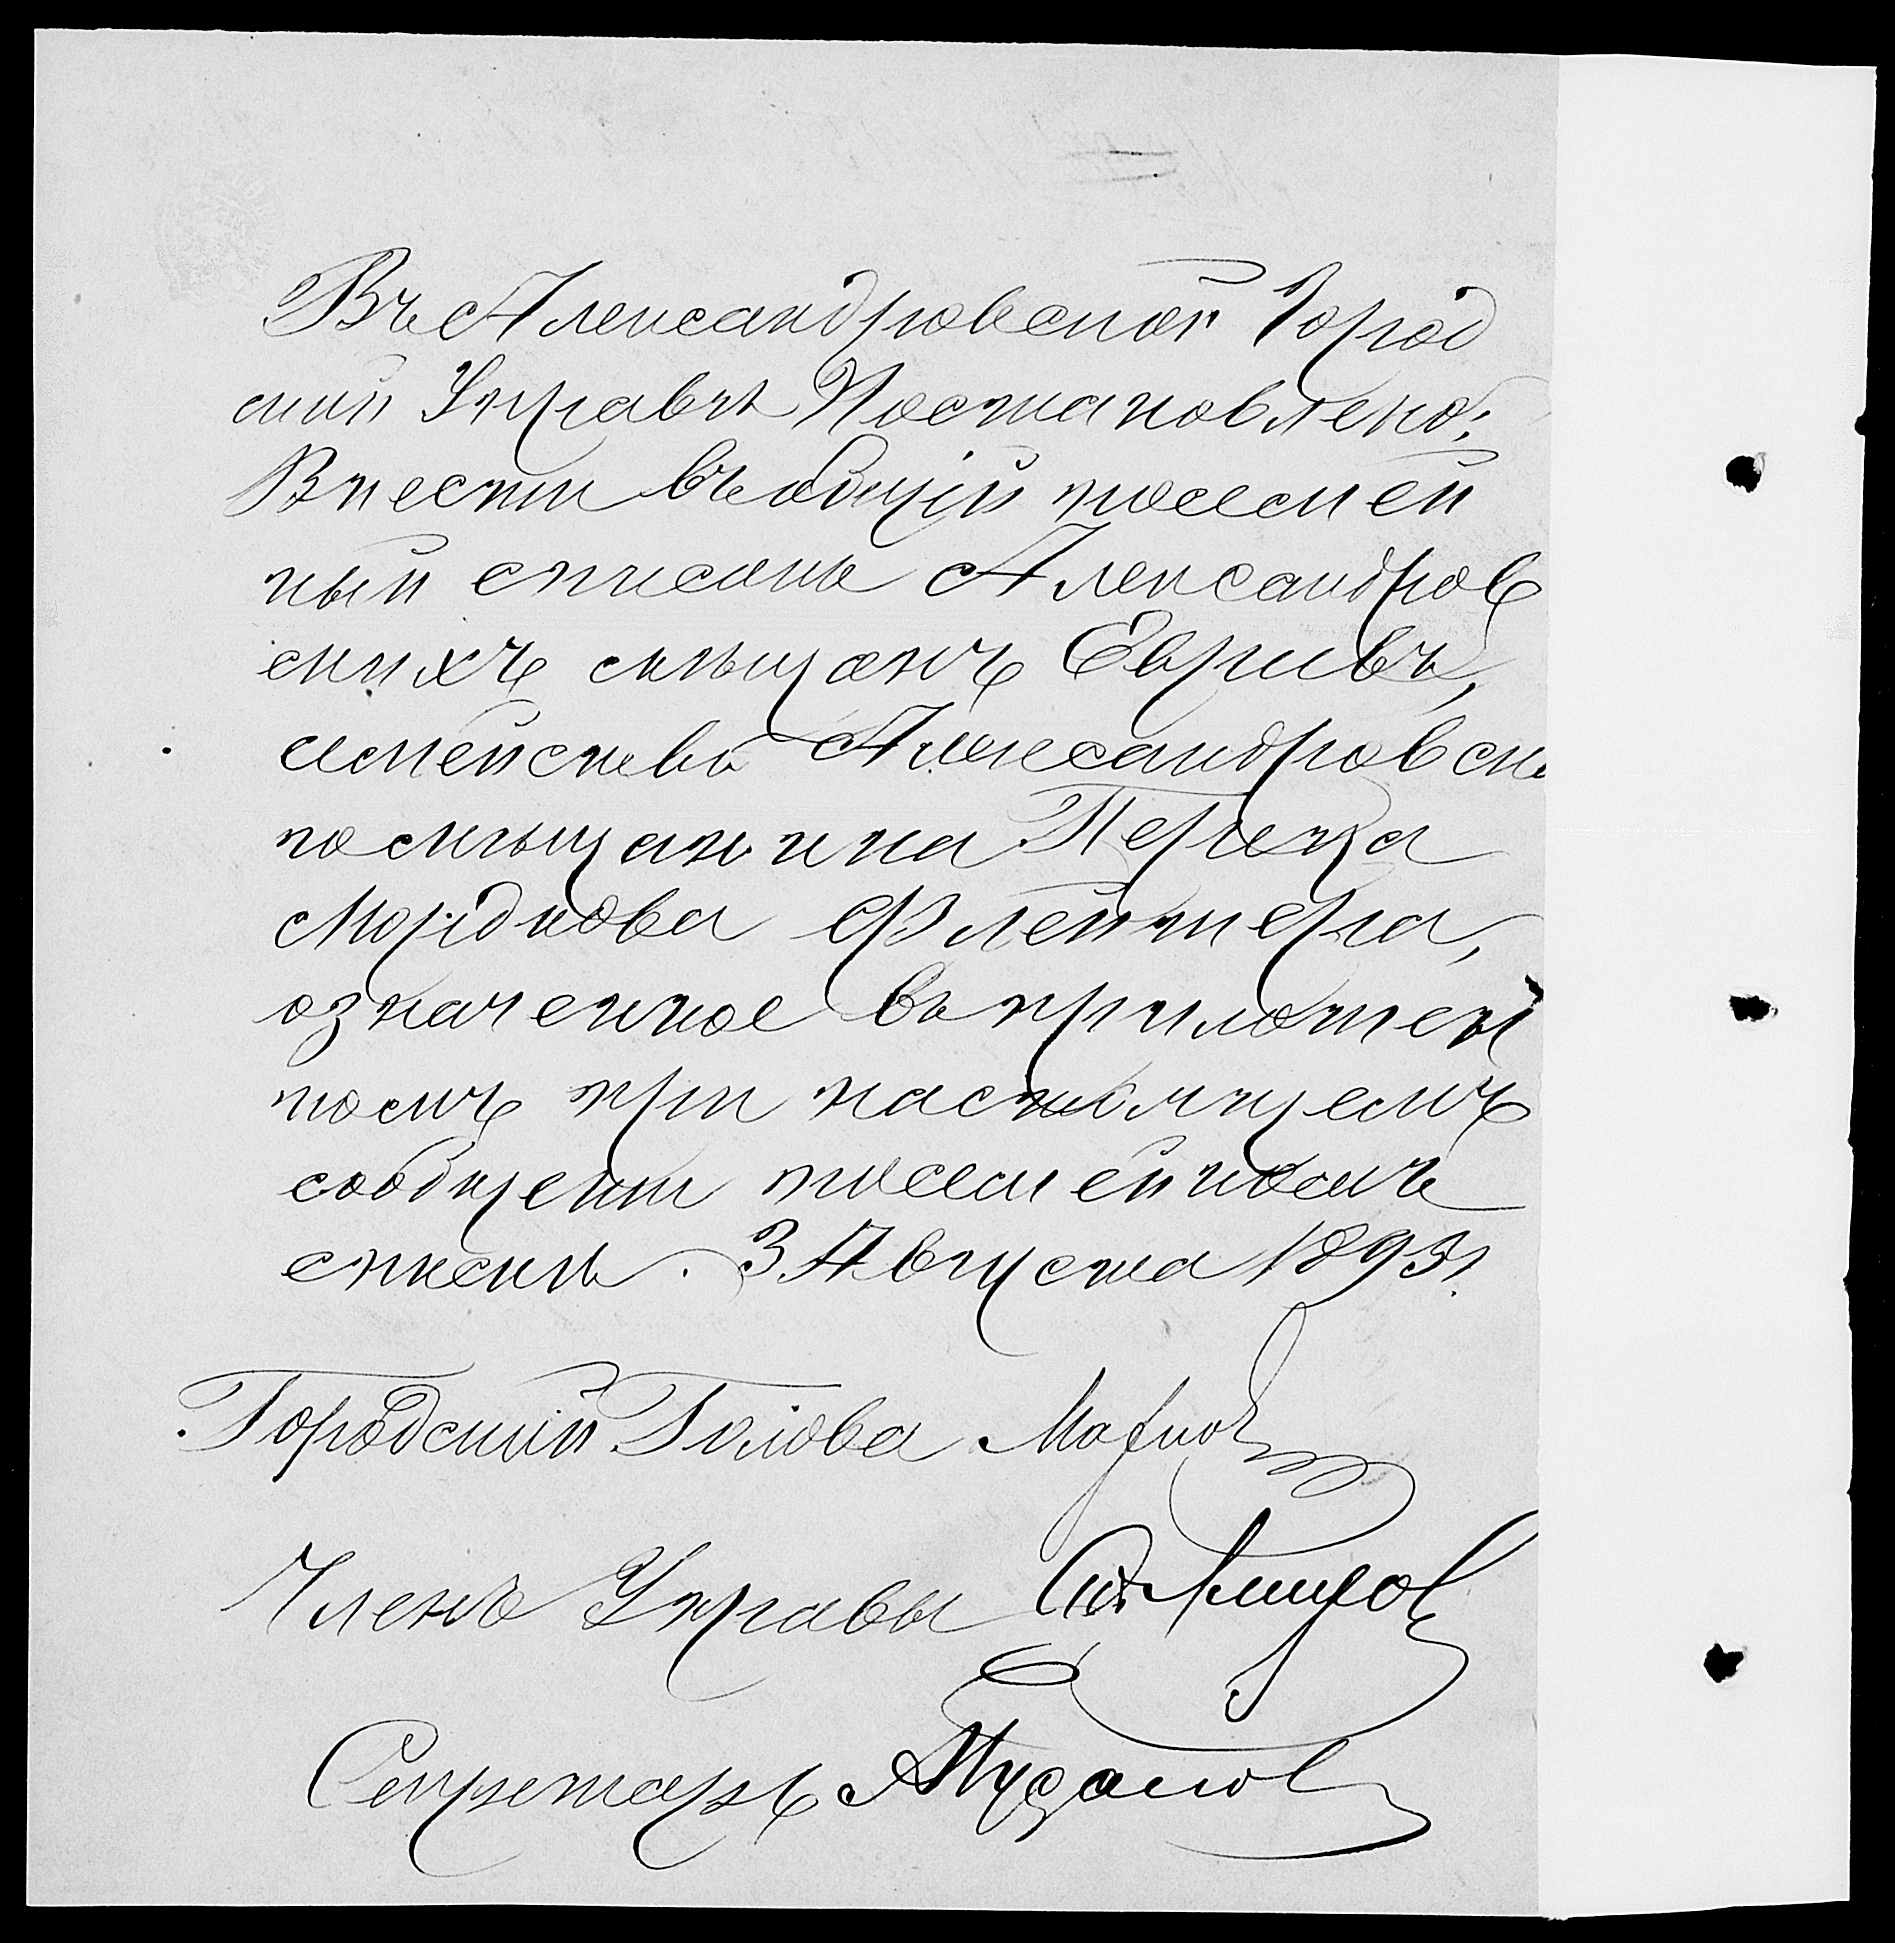 Въ Александровской Город
ской Управѣ Постановлено:
Внести въ общій посемей
ный списокъ Александров
скихъ мѣщанъ Евреевъ,
семейство Александровска
го мѣщанина Переца
Мордкова Флейтера,
означенное въ приложен
номъ при настоящемъ
сообщеніи посемейномъ
спискѣ. 3 Августа 1893 г.
Городской Голова
Членъ Управы
Секретарь